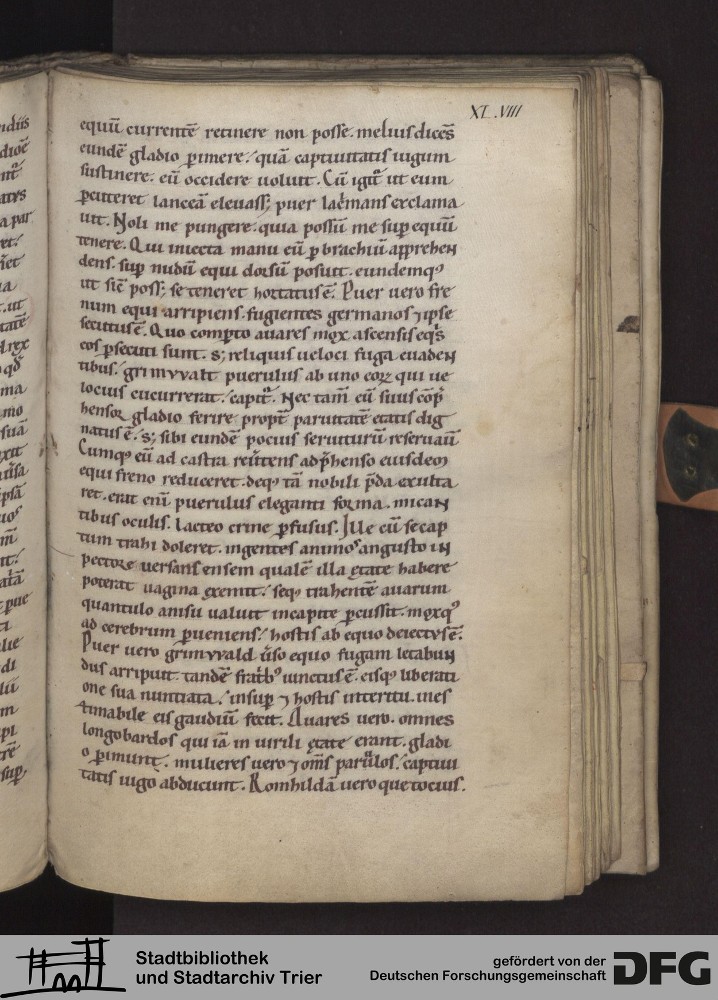 XL.VIII
equū currentē retinere non posse. meluis dicēs
eundē gladio ꝑimere. quā captiuitatis iugum
sustinere. eū occidere uoluit. Cū igit̄ ut eum
ꝑcuteret lanceā eleuass; puer lac̄mans exclama
uit. Noli me pungere. quia possū me suꝑ equū
tenere. Qui iniecta manu eū ꝑ brachiū apprehen
dens. suꝑ nudū equi dorsū posuit. eundemq;
ut siē poss; se teneret hortatus ē. Puer uero fre
num equi arripiens. fugientes germanos ⁊ ipse
secutus ē. Quo comꝑto auares mox ascensis eq̄s
eos ꝑsecuti sunt. s; reliquis ueloci fuga euaden
tibus. grimvvalt puerulus ab uno eoꝝ qui ue
locius cucurrerat. capit̄. Nec tam̄ eū suus cōp̄
hensor gladio ferire propt̄ paruitatē etatis dig
natus ē. s; sibi eundē pocius seruiturū reseruauit
Cumq; eū ad castra reūtens adp̄henso eiusdem
equi freno reduceret. deq; tā nobili p̄da exulta
ret. erat enī puerulus eleganti forma. mican
tibus oculis. lacteo crine ꝑfusus. Ille cū se cap
tum trahi doleret. ingentes animos angusto in
pectore uersans ensem qualē illa ętate habere
poterat uagina exemit. seq; trahentē auarum
quantulo anisu ualuit incapite ꝑcussit. moxq;
ad cerebrum ꝑueniens. hostis ab equo deiectus ē.
Puer uero grimvvald ūso equo fugam letabun
dus arripuit. tandē fratrib; iunctus ē. eisq; liberati
one sua nuntiata. insuꝑ ⁊ hostis interitu. ines
timabile eis gaudiū fecit. Auares uero. omnes
longobardos qui iā in uirili ętate erant. gladi
o ꝑimunt. mulieres uero ⁊ om̄s paruulos. captiui
tatis iugo abducunt. Romhildā uero que tocius.
Stadtbibliothek
und Stadtarchiv Trier
gefördert von der
Deutschen Forschungsgemeinschaft
DFG